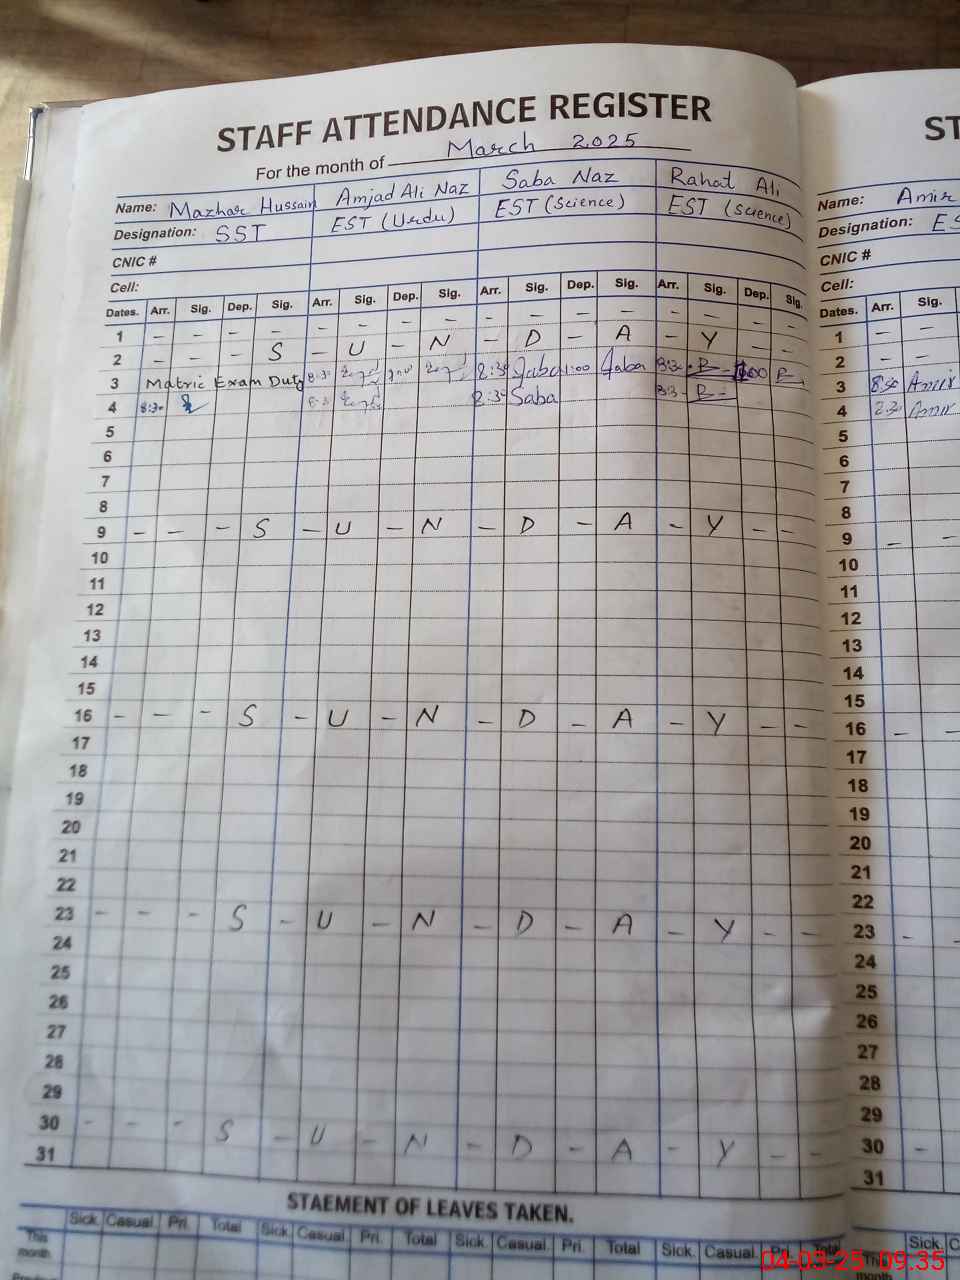 STAFF ATTENDANCE REGISTER
For the month of March 2025
Name: Mazhar Hussain Amjad Ali Naz Saba Naz Rahat Ali
Designation: SST EST (Urdu) EST (Science) EST (Science)
CNIC #
Cell:
Dates. Arr. Sig. Dep. Sig. Arr. Sig. Dep. Sig. Arr. Sig. Dep. Sig. Arr. Sig. Dep. Sig.
1 - - - - - - - - - - - - - -
2 - - - S - U - N - D - A - Y - -
3 Matric Exam Duty 8:30 8:30 Saba 1:00 Saba 8:30
4 8:30 8:30 Saba 8:3
5
6
7
8
9 - - - S - U - N - D - A - Y - -
10
11
12
13
14
15
16 - - - S - U - N - D - A - Y - -
17
18
19
20
21
22
23 - - - S - U - N - D - A - Y - -
24
25
26
27
28
29
30 - - - S - U - N - D - A - Y - -
31
STAEMENT OF LEAVES TAKEN.
Sick. Casual. Pri. Total Sick. Casual. Pri. Total Sick. Casual. Pri. Total Sick. Casual. Pri. Total
This month
ST
Name: Amir
Designation: ES
CNIC #
Cell:
Dates. Arr. Sig.
1 - -
2 - -
3 8:30 Amir
4 8:30 Amir
5
6
7
8
9 - -
10
11
12
13
14
15
16 - -
17
18
19
20
21
22
23 - -
24
25
26
27
28
29
30 -
31
Sick. C
This month
04-03-25 09:35